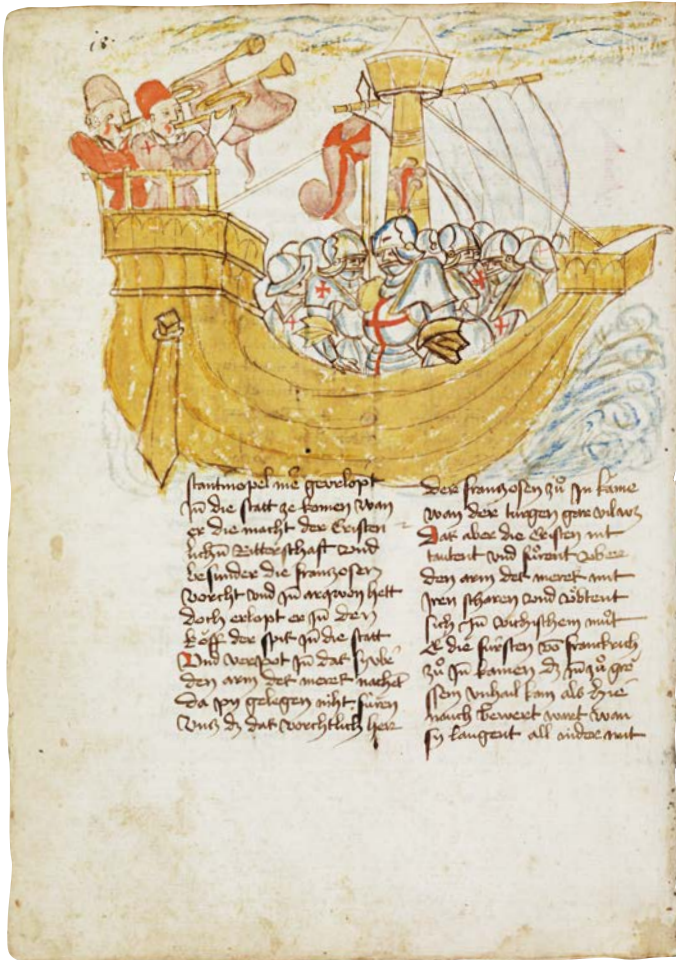 18.
stantinopel nie gevelopt
Jn die statt ze komen wan
er die macht der Cristen
lichen Ritterschaft vnd
besunder die franzosen
vorcht vnd Jn arqwon hett
doch erlopt er Jn den
koff der spis Jn die statt
Vnd verbot Jn das sy vber
den arm des meres nachet
da gelegen niht füren
Vntz dz das vorchtlich her
der franzosen zů Jn käme
wan der turgen gar vil wz
Das aber die Cristen nit
tautent vnd fůrent vber
den arm des meres mit
Jren scharen vnd vͦbtent
sich Jn můt
E die fürsten vō franckrich
zů Jn kamen dz Jn zů gro
ssem vnhail kam als hie
nauch bewert wart wan
sy all nider mit